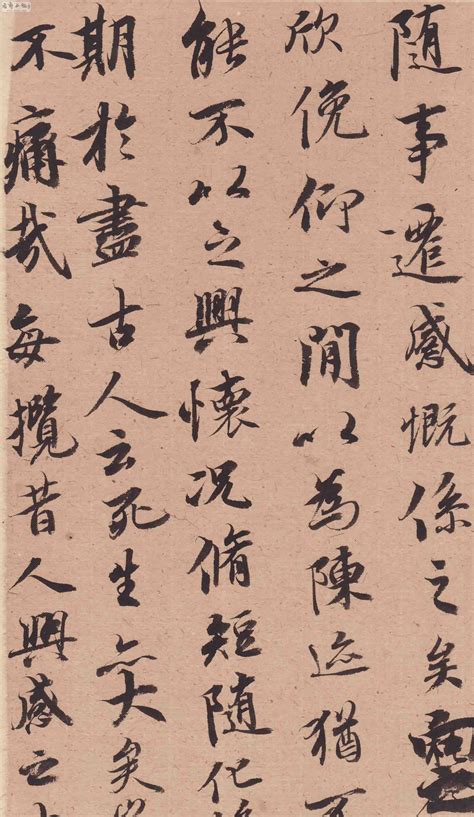 随事遷感慨係之矣向之
欣俛仰之閒以為陳迹猶不
能不以之興懷况脩短随化
期於盡古人云死生亦大矣
不痛哉每攬昔人興感之